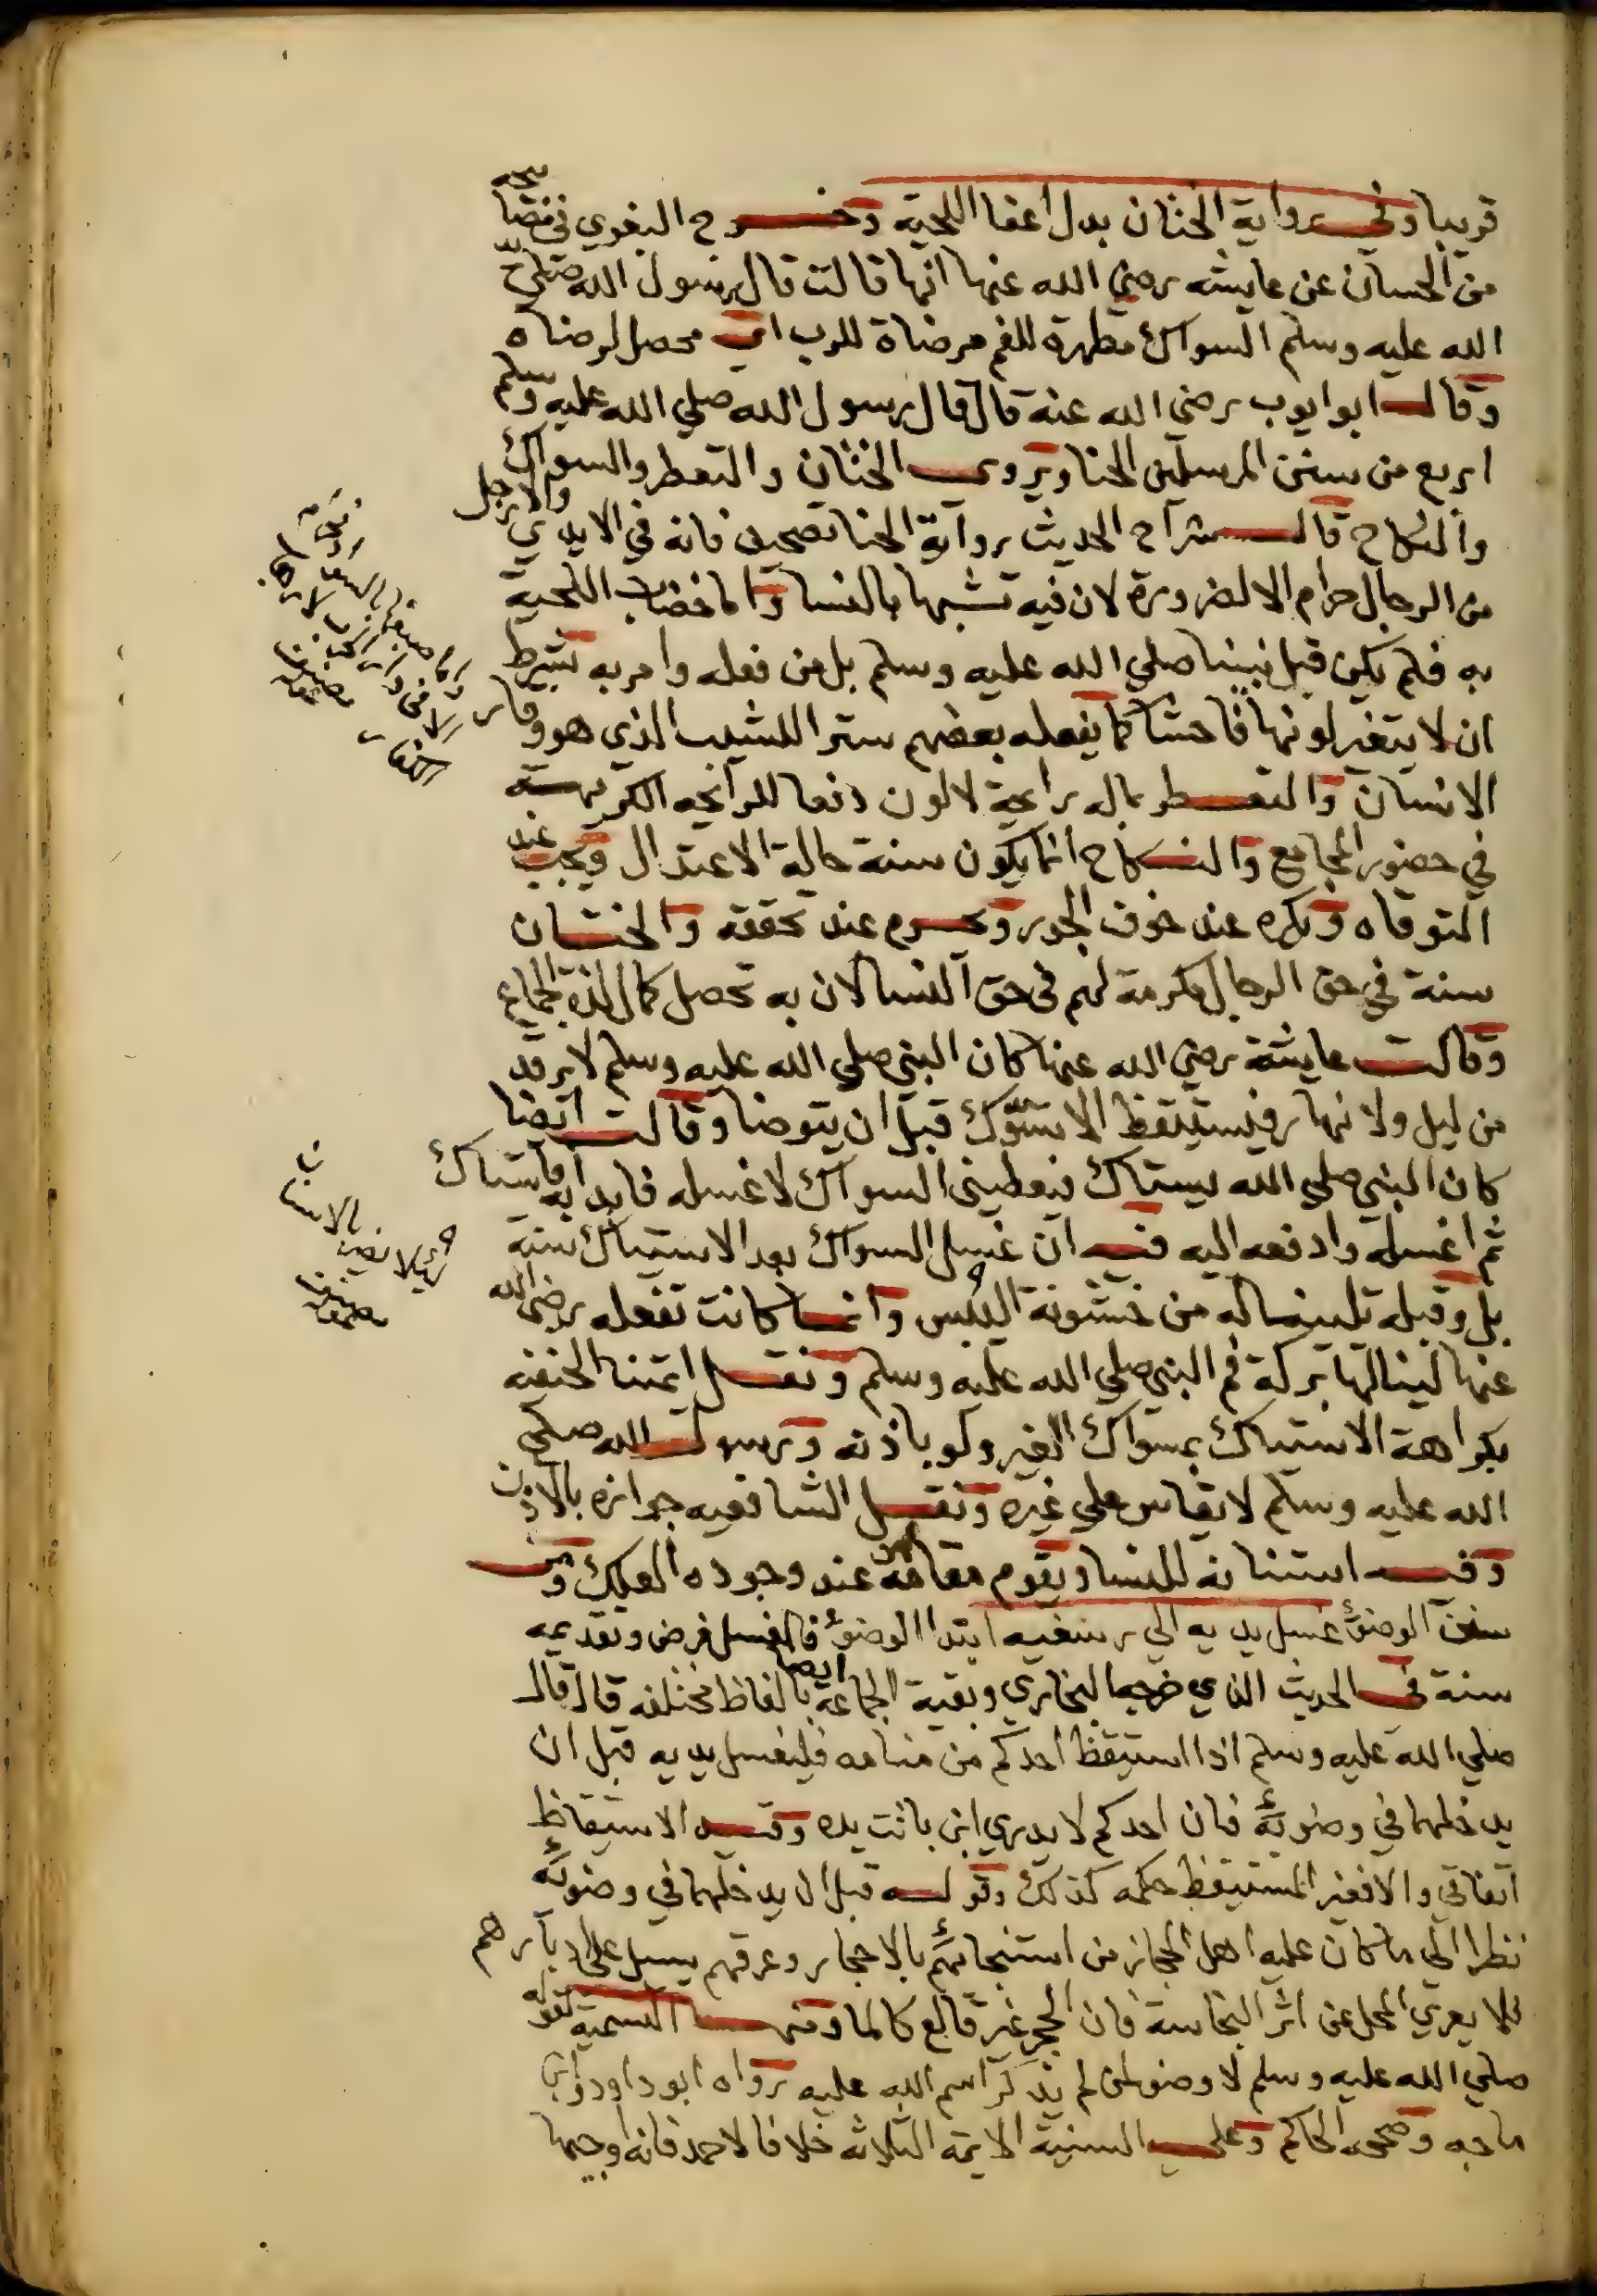 قريبا وفي رواية الختان بدل اعفا اللحية وخرج البغوي في مصابيحه
من الحسان عن عايشه رضي الله عنها انها قالت قال رسول الله صلي
الله عليه وسلم السواك مطهرة للفم مرضاة للرب اي محصل لرضاه
وقال ابو ايوب رضي الله عنه قال قال رسول الله صلي الله عليه وسلم
اربع من سنن المرسلين الحنا ويروي الختان والتعطر والسواك
والنكاح قال شراح الحديث رواية الحنا تصحيف فانه في الايدي والارجل
من الرجال حرام الا لضرورة لان فيه تشبها بالنسا واما خضاب اللحية
به فلم يكن قبل نبينا صلي الله عليه وسلم بل من فعله وامر به بشرط
ان لا يتغير لونها فاحشا كما يفعله بعضهم سترا للشيب الذي هو وقار
الانسان والتعطر بماله رايحة لا لون دفعا للرائحه الكريهة
في حضور المجامع والنكاح انما يكون سنة حالة الاعتدال ويجب عند
التوقان ويكره عند خوف الجور ويحرم عند تحققه والختان
سنة في حق الرجال مكرمة لهم في حق النسا لان به تحصل كمال لذة الجماع
وقالت عايشة رضي الله عنها كان النبي صلي الله عليه وسلم لا يرقد
من ليل ولا نهار فيستيقظ الا تسوك قبل ان يتوضا وقالت ايضا
كان النبي صلي الله يستاك فيعطيني السواك لاغسله فابدا به فاستاك
ثم اغسله وادفعه اليه فيه ان غسل السواك بعد الاستياك سنة
بل وقبله تليينا له من خشونة اليبس وانما كانت تفعله رضي الله
عنها لينالها بركة فم النبي صلي الله عليه وسلم ونقل ايمتنا الحنفيه
بكراهة الاستياك بسواك الغير ولو باذنه ورسول الله صلي
الله عليه وسلم لا يقاس علي غيره ونقل الشافعيه جوازه بالاذن
وفيه استنانه للنسا ويقوم مقامه عند وجوده العلك ومن
سنن الوضوء غسل يديه الي رسغيه ابتدا الوضوء فالغسل فرض وتقديمه
سنة في الحديث الذي خرجه البخاري وبقية الجماعة ايضا بالفاظ مختلفه قال قال
صلي الله عليه وسلم اذا استيقظ احدكم من منامه فليغسل يديه قبل ان
يدخلهما في وضوئه فان احدكم لا يدري اين باتت يده وقيد الاستيقاظ
اتفاقي والا فغير المستيقظ حكمه كذلك وقوله قبل ان يدخلهما في وضوئه
نظرا الي ما كان عليه اهل الحجاز من استنجائهم بالاحجار وعرقهم يسيل علي ادبارهم
فلا يعري المحل عن اثر النجاسة فان الحجر غير قالع كالما ومنها التسمية لقوله
صلي الله عليه وسلم لا وضو لمن لم يذكر اسم الله عليه رواه ابو داود وابن
ماجه وصححه الحاكم وعلي السنية الايمة الثلاثه خلافا لاحمد فانه اوجبها
واما صبغها بالسواد